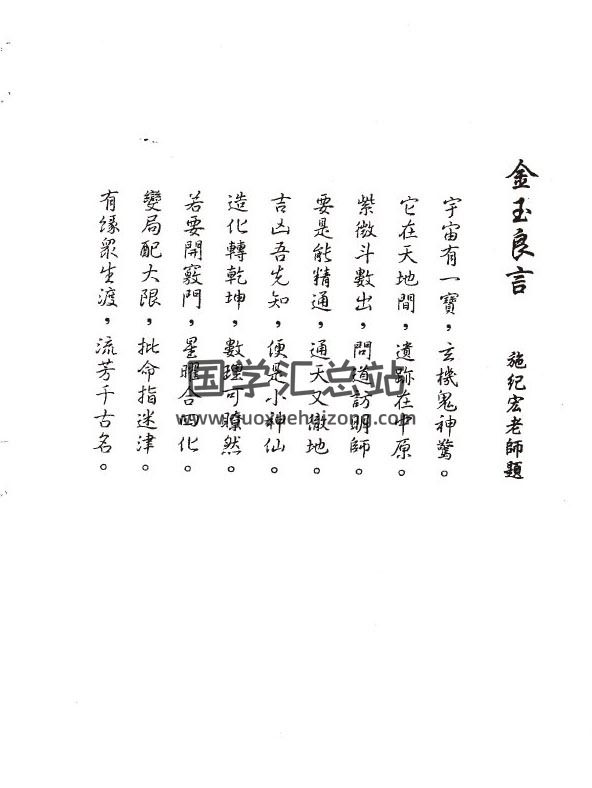 金玉良言
施纪宏老師題
宇宙有一寶，玄機鬼神驚。
它在天地間，遺跡在中原。
紫微斗數出，問道訪明師。
要是能精通，通天又徹地。
吉凶吾先知，便是小神仙。
造化轉乾坤，數理可瞭然。
若要開竅門，星曜合四化。
變局配大限，批命指迷津。
有緣眾生渡，流芳千古名。
国学汇总站
www.guoxuehuizong.com